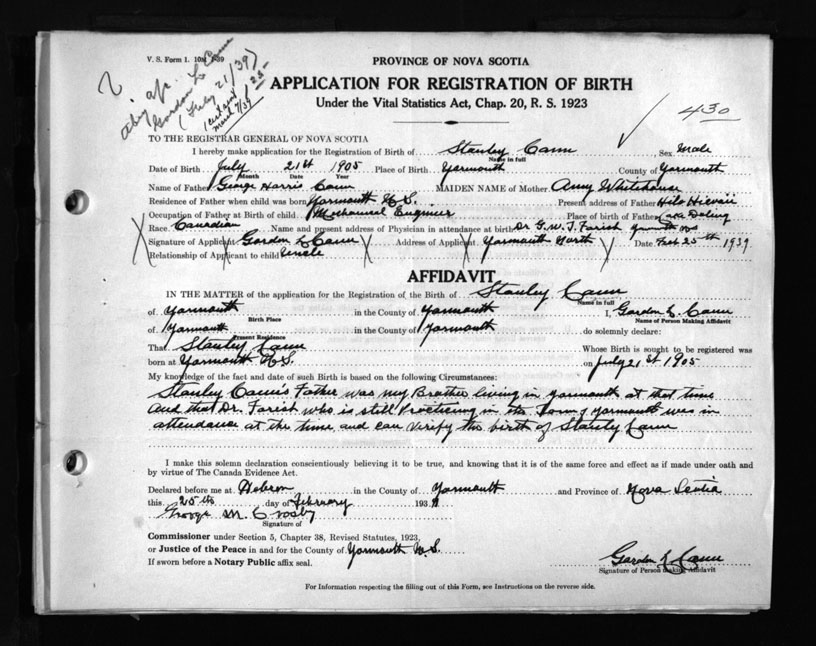 V. S. Form 1. 10M 1-39
PROVINCE OF NOVA SCOTIA
APPLICATION FOR REGISTRATION OF BIRTH
Under the Vital Statistics Act, Chap. 20, R. S. 1923
Gordon L Cann
(July 21/39)
430
TO THE REGISTRAR GENERAL OF NOVA SCOTIA
I hereby make application for the Registration of Birth of Stanley Cann Sex Male
Name in full
Date of Birth July 21st 1905 Place of Birth Yarmouth County of Yarmouth
Month Date Year
Name of Father George Harris Cann MAIDEN NAME of Mother Amy Whitehouse
Residence of Father when child was born Yarmouth N.S. Present address of Father Hilo
Occupation of Father at Birth of child Mechanical Engineer Place of birth of Father
Race Canadian Name and present address of Physician in attendance at birth Dr G.W.T. Farish Yarmouth NS
Signature of Applicant Gordon L Cann Address of Applicant Yarmouth North Date Feb 25th 1939
Relationship of Applicant to child Uncle
AFFIDAVIT
IN THE MATTER of the application for the Registration of the Birth of Stanley Cann
Name in full
of Yarmouth in the County of Yarmouth I, Gordon L. Cann
Birth Place Name of Person Making Affidavit
of Yarmouth in the County of Yarmouth do solemnly declare:
Present Residence
That Stanley Cann Whose Birth is sought to be registered was
born at Yarmouth N.S. on July 21st 1905
My knowledge of the fact and date of such Birth is based on the following Circumstances:
Stanley Cann's Father was my Brother living in Yarmouth at that time
and that Dr. Farish who is still Practicing in the Town of Yarmouth was in
attendance at the time and can verify the birth of Stanley Cann
I make this solemn declaration conscientiously believing it to be true, and knowing that it is of the same force and effect as if made under oath and
by virtue of The Canada Evidence Act.
Declared before me at Hebron in the County of Yarmouth and Province of Nova Scotia
this 25th day of February 1939
George M. Crosby
Signature of
Commissioner under Section 5, Chapter 38, Revised Statutes, 1923,
or Justice of the Peace in and for the County of Yarmouth N.S.
If sworn before a Notary Public affix seal.
Gordon L Cann
Signature of Person making Affidavit
For Information respecting the filling out of this Form, see Instructions on the reverse side.